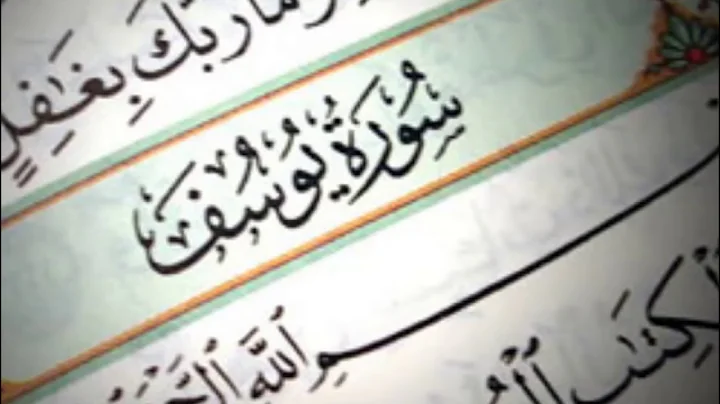 وَمَا رَبُّكَ بِغَٰفِلٍ
سُورَةُ يُوسُفَ
بِسْمِ ٱللَّهِ ٱلرَّحْمَٰنِ
ٱلْكِتَٰبِ ٱلْمُبِينِ